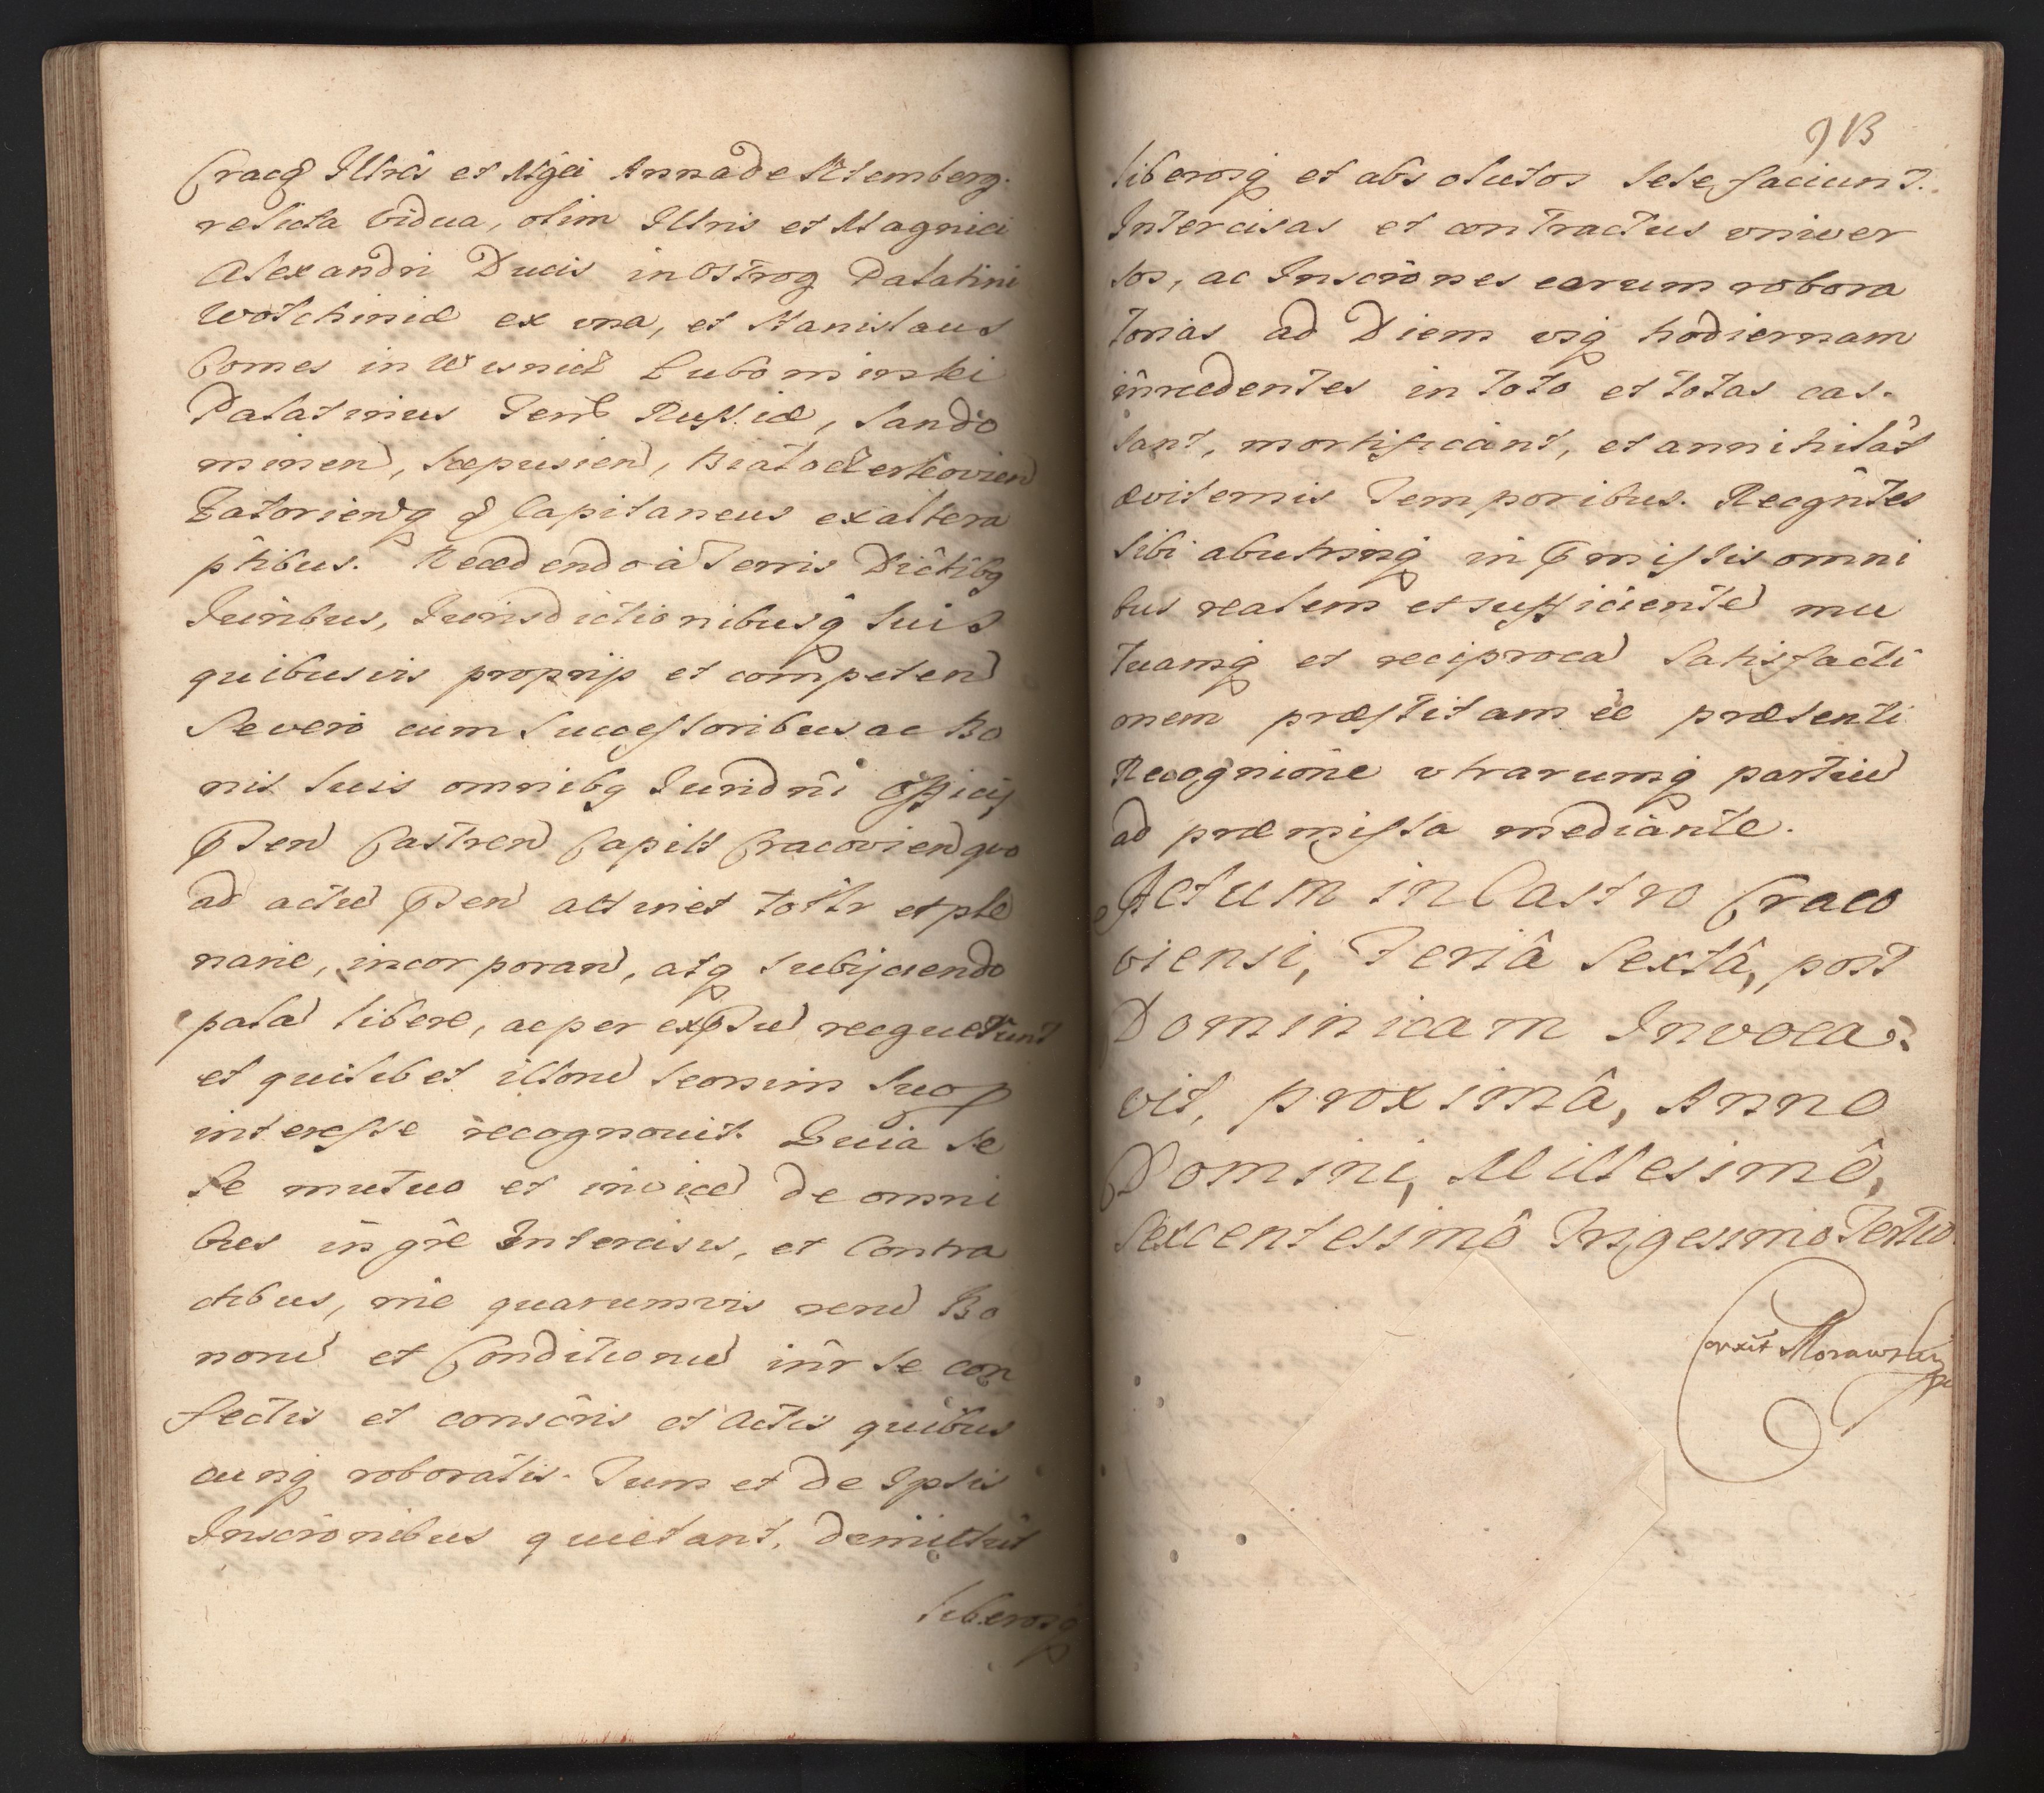 Cracq Illris et Mgca Anna de Sztemberg.
relicta vidua, olim Illris et Magnici
Alexandri Ducis in Ostrog Palatini
Wolchiniæ ex vna, et Stanislaus
Comes in Wisnicz Lubomirski
Palatinus Terrũ Russiæ, Sando
mirien, Scepusien, Białocerkovien
Zatorienq q Capitaneus ex altera
ptibus. Recedendo à Terris Dictibq
Juribus, Jurisdictionibusq suis
quibusvis proprijs et competen
Se vero cum Successoribus ac Bo
nis suis omnibq Jurisdni Officij
pñten Castren Capitl Cracovien quo
ad actu pñten attinet tolltr et ple
narie, incorporan, atq subijciendo
pala libere, ac per expssu recgnerunt
et quilibet illoru seorsim suo p
interesse recognovit. Quia se
se mutuo et invice de omni
bus in gñe Intercisis, et Contra
ctibus, rñe quarumvis reru Bo
noru et Conditionu inr se con
fectis et conscris et Actis quibus
cunq roboratis. Tum et de Ipsis
Inscrionibus quietant, demittut
liberosq
liberosq et absolutos sese faciunt.
Intercisas et contractus vniver
sos, ac Inscriones earum robora
torias ad Diem vsq hodiernam
inrcedentes in toto et totas cas-
sant, mortificant, et annihilat
æviternis Temporibus. Recgntes
sibi abutrinq in pmissis omni
bus realem et sufficiente mu
tuamq et reciproca Satisfacti
onem præstitam ee præsenti
Recognione vtrarumq partiu
ad præmissa mediante.
Actum in Castro Craco
viensi, Feriâ Sextâ, post
Dominicam Invoca-
vit, proximâ, Anno
Domini, Millesimô,
Sexcentesimô Trigesimo Tertio.
Corxit Morawski